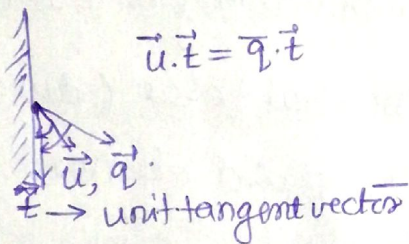 u⃗.t⃗ = q̅.t⃗
u⃗, q⃗.
t → unit tangent vector